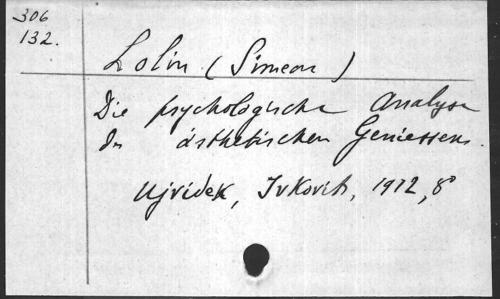 306
132.
Lolin (Simeon)
Die psychologische Analyse
des ästhetischen Geniessens.
Ujvidek, Ivkovits, 1912, 8°